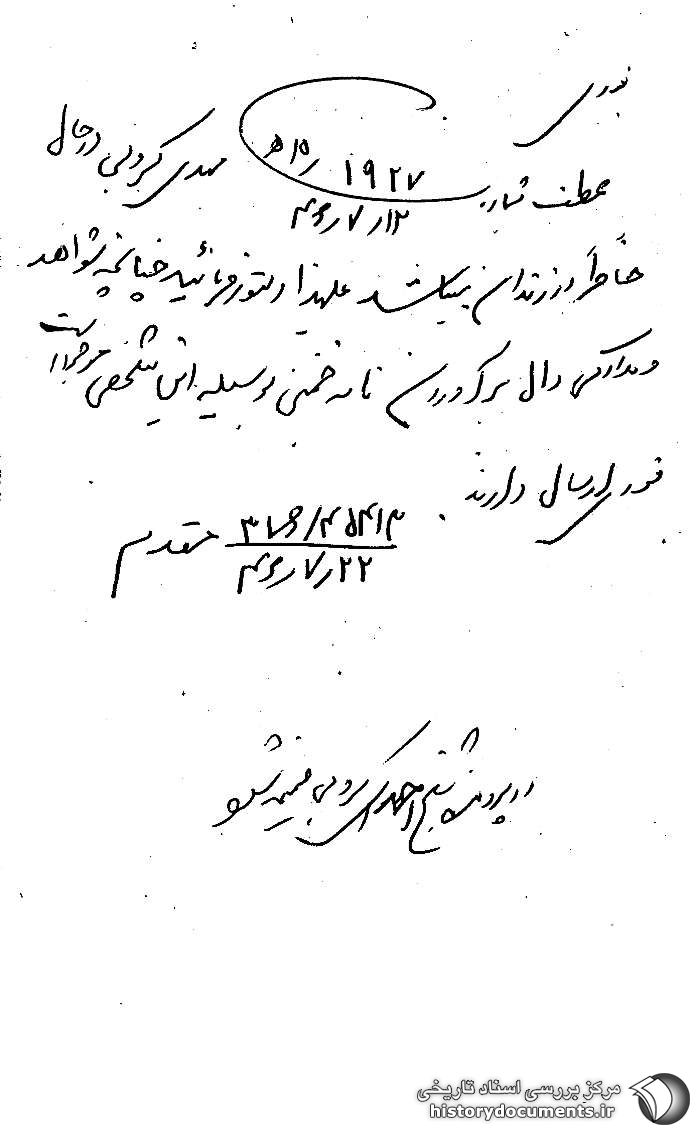 فوری
عطف شماره ۱۹۲۷/۵۱۰ مهدی کروبی در حال
۱۲ر۷ر۴۶
حاضر در زندان میباشد علیهذا دستور فرمائید چنانچه شواهد
و مدارکی دال بر آوردن نامه خمینی بوسیله این شخص موجود است
فوری ارسال دارند.
۳۷۶/۴۵۴۱۳ مقدم
۲۲ر۷ر۴۶
در پرونده شیخ احمد کروبی ضمیمه شود
مرکز بررسی اسناد تاریخی
historydocuments.ir